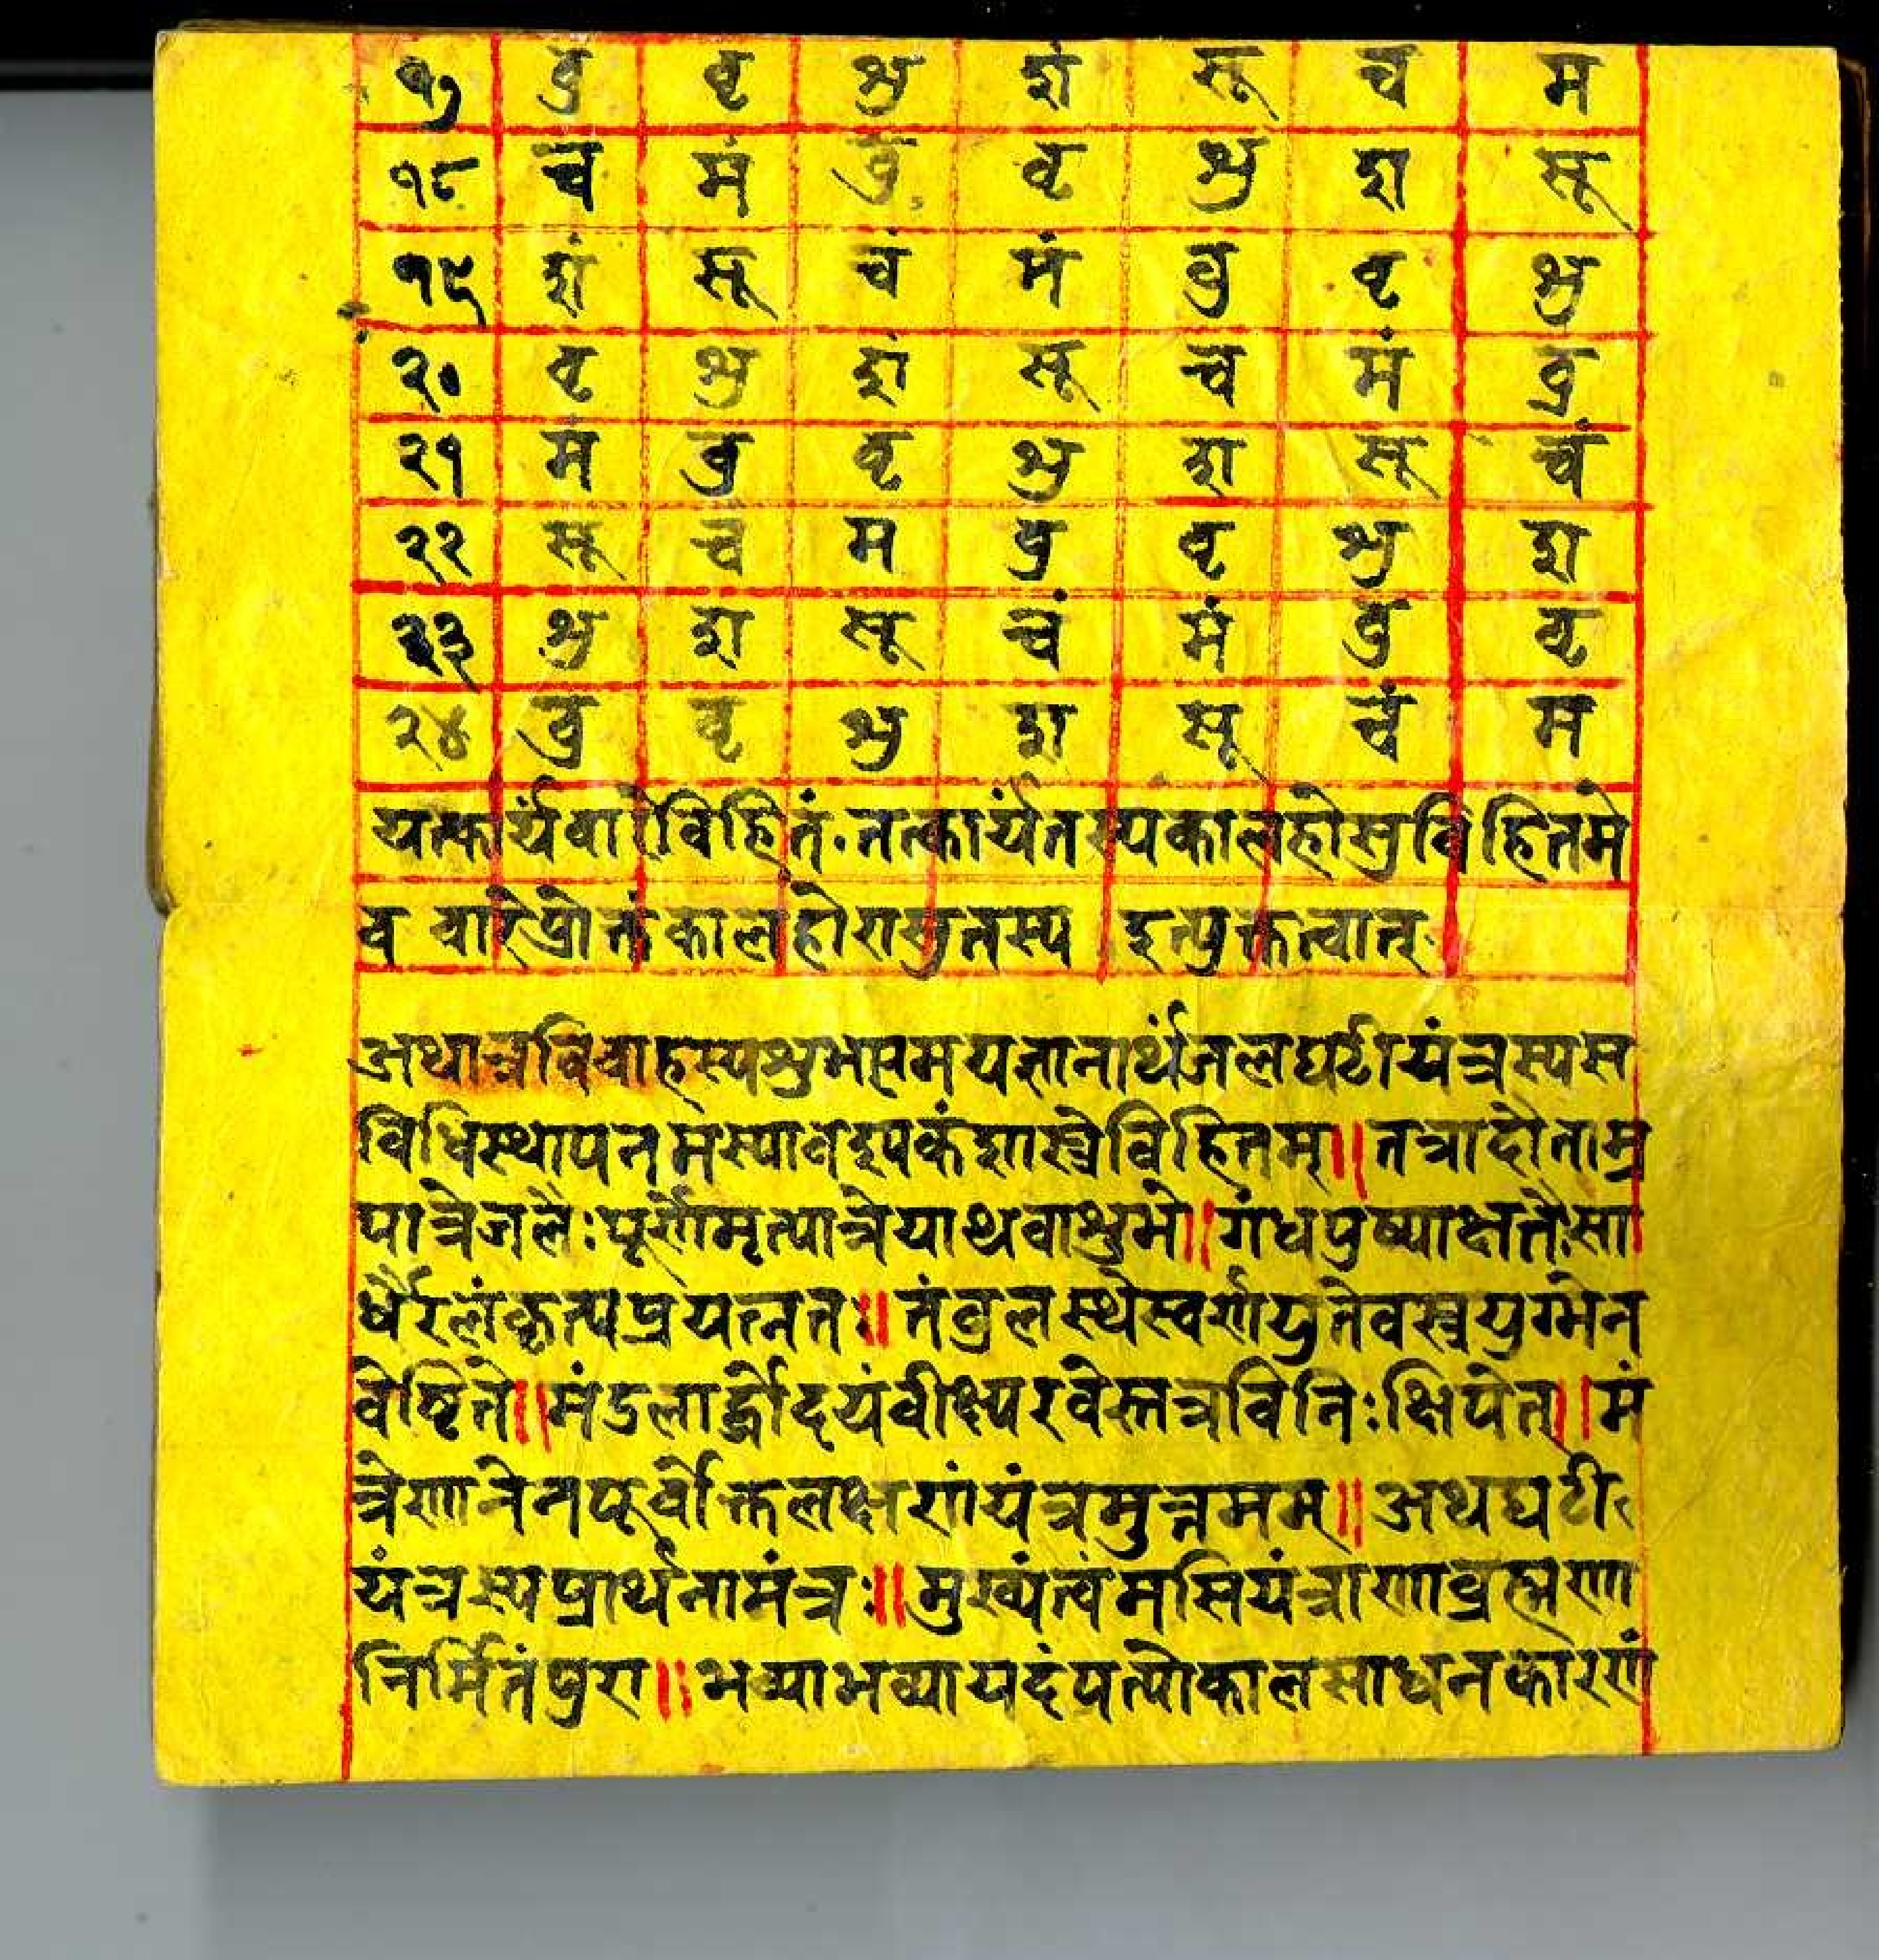 १७ वु वृ शु श सू च म
१८ च मं वु वृ शु श सू
१९ श सू चं मं वु वृ शु
२० वृ शु श सू च मं वु
२१ मं वु वृ शु श सू चं
२२ सू च म वु वृ शु श
२३ शु श सू चं मं वु वृ
२४ वु वृ शु श सू चं म
यत्कार्यंवारेविहितं तत्कार्यंतस्यकालहोसुविहितमे
व वारेप्रोक्तंकालहोरासुतस्य इत्युक्तत्वात्
अथात्रविवाहस्यशुभसमयज्ञानार्थंजलघटीयंत्रस्यस
विधिस्थापनमस्या शास्त्रेविहितम्॥तत्रादौताम्र
पात्रेजलैःपूर्णेमृत्पात्रेयाथवाशुभे॥गंधपुष्पाक्षतैःसा
र्धैरलंकृत्यप्रयत्नतः॥तंवुलस्थेस्वर्णयुतेवस्त्रयुग्मेन
वेष्टिते॥मंडलार्द्धोदयंवीक्ष्यरवेस्तत्रविनिःक्षिपेत्॥मं
त्रेणानेनपूर्वोक्तलक्षणंयंत्रमुत्तमम्॥अथघटी
यंत्रस्यप्रार्थनामंत्रः॥मुख्यंत्वंमसियंत्राणाव्रह्मणा
निर्मितंपुरा॥भव्याभव्यायदंपत्योकालसाधनकारणं